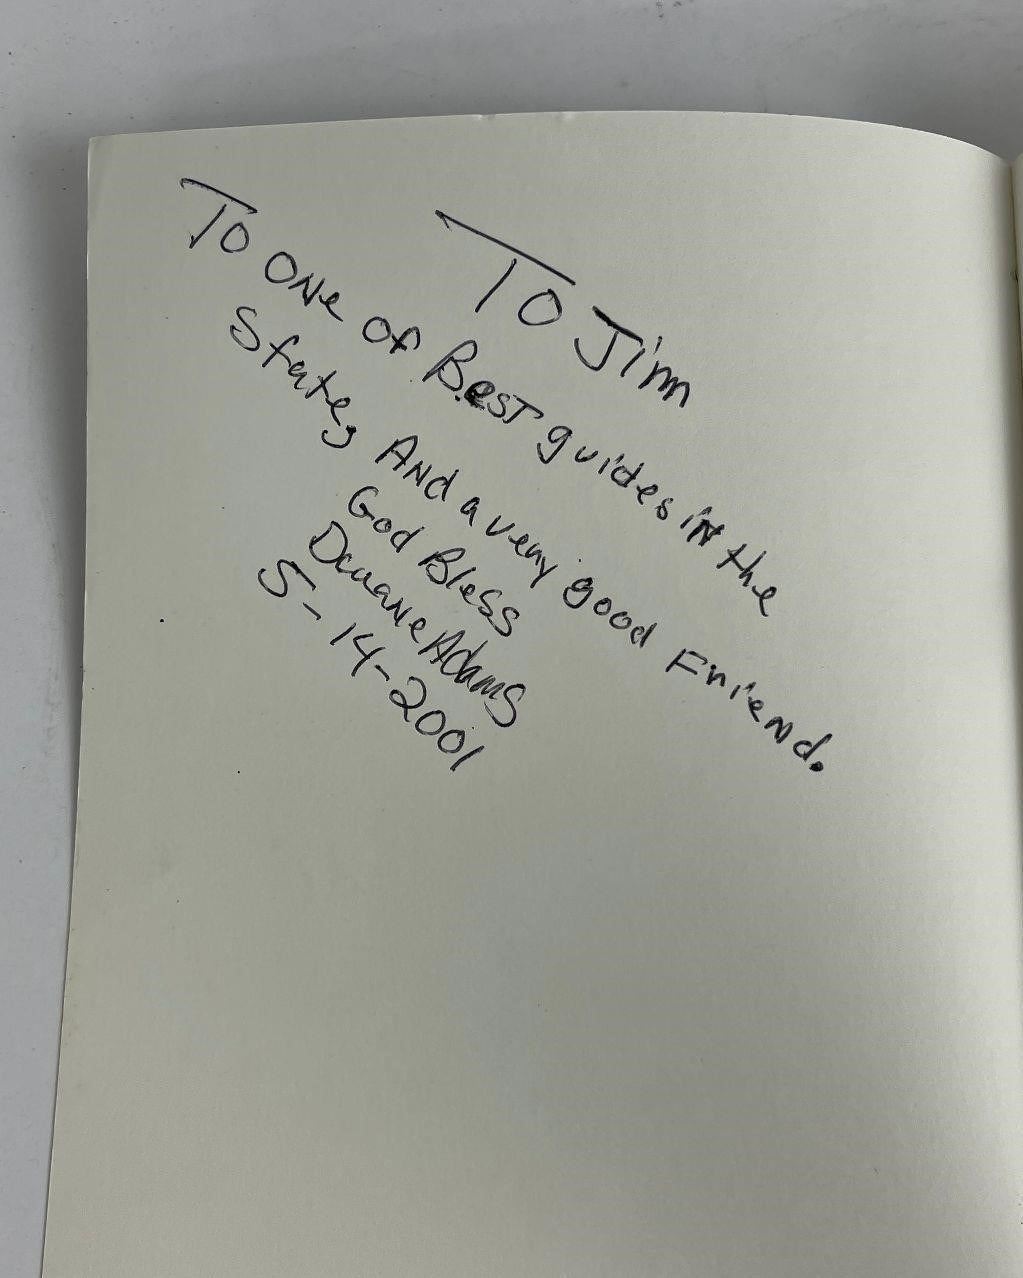 To Jim
To ONe of Best guides iN the
State, ANd a very good FrieNd.
God Bless
DuaNe Adams
5-14-2001